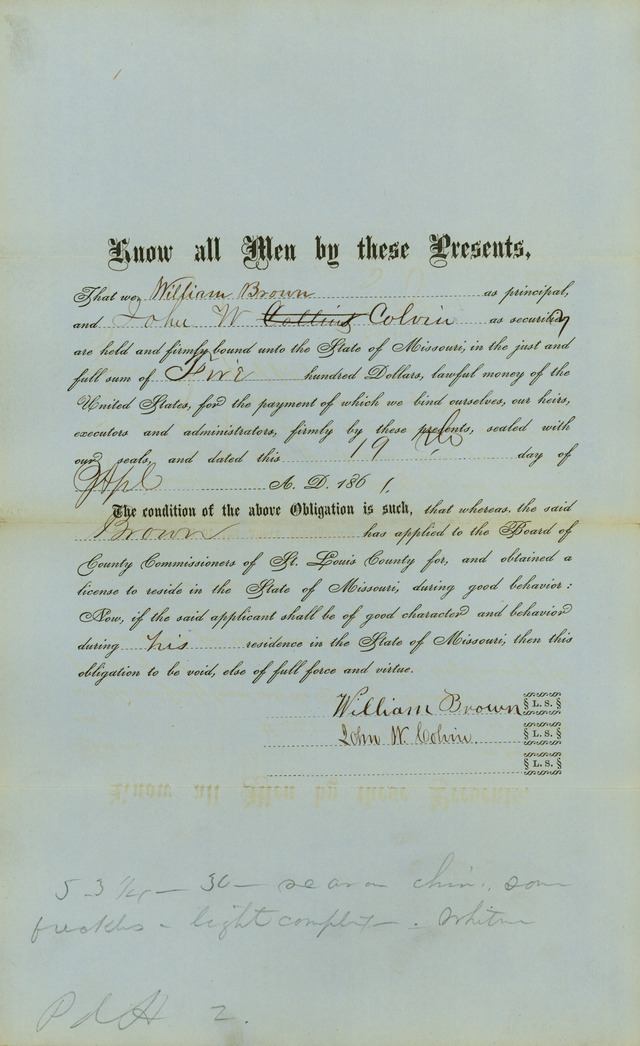 Know all Men by these Presents,
That we, William Brown as principal,
and John W Collins Colvin as security
are held and firmly bound unto the State of Missouri, in the just and
full sum of Five hundred Dollars, lawful money of the
United States, for the payment of which we bind ourselves, our heirs,
executors and administrators, firmly by these presents, sealed with
our seals, and dated this 19 day of
Apl A. D. 186 1,
The condition of the above Obligation is such, that whereas, the said
Brown has applied to the Board of
County Commissioners of St. Louis County for, and obtained a
license to reside in the State of Missouri, during good behavior:
Now, if the said applicant shall be of good character and behavior
during his residence in the State of Missouri, then this
obligation to be void, else of full force and virtue.
William Brown § L. S. §
John W. Colvin § L. S. §
§ L. S. §
5-3 1/4 - 30 - scar on chin, some
freckles - light complex -
Pd H 2.